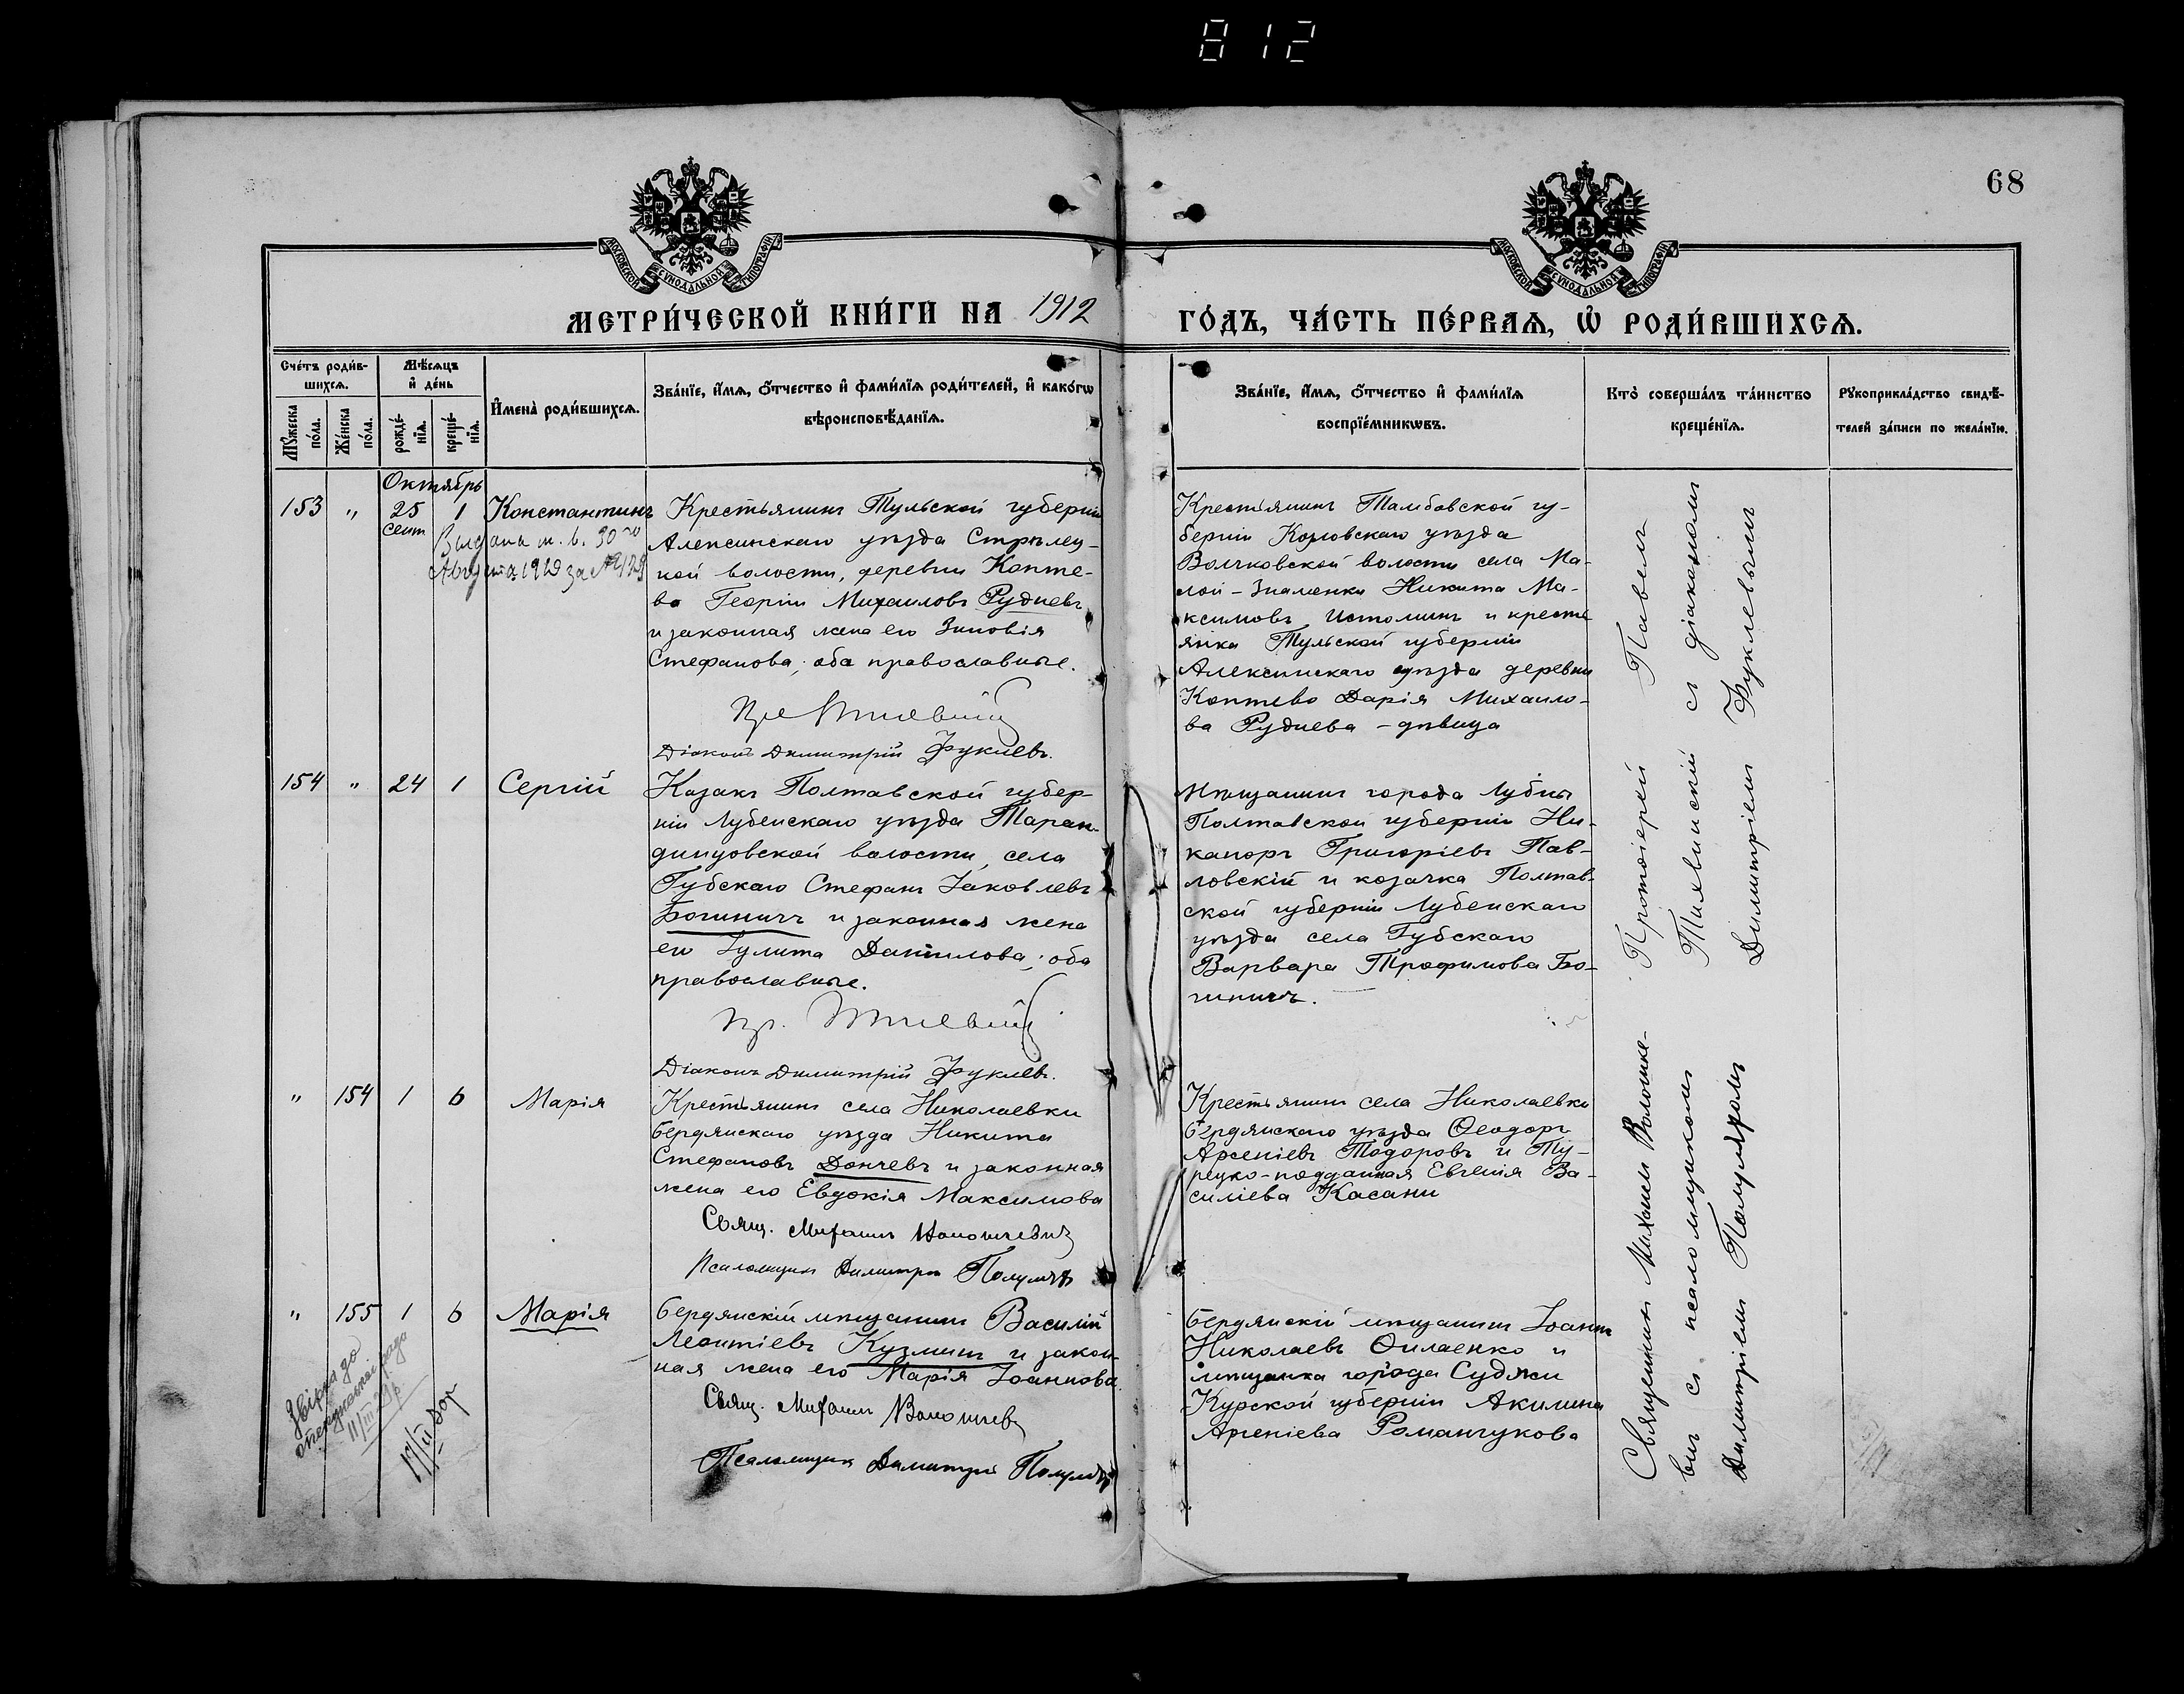 812
68
МОСКОВСКОЙ СѴНОДАЛЬНОЙ ТИПОГРАФІИ
МОСКОВСКОЙ СѴНОДАЛЬНОЙ ТИПОГРАФІИ
МЕТРИ́ЧЕСКОЙ КНИ́ГИ НА 1912
ГО́ДЪ, ЧА́СТЬ ПЕ́РВАѦ, Ѽ РОДИ́ВШИХСѦ.
Счéтъ роди́в-
шихсѧ.
Мꙋ́жеска по́ла.
Же́нска по́ла.
Мѣ́сѧцъ
и҆ де́нь
рожде́-
нїѧ.
креще́-
нїѧ.
И҆мена̀ роди́вшихсѧ.
Зва́нїе, и҆́мѧ, ѻ҆́тчество и҆ фами́лїѧ роди́телей, и҆ како́гѡ
вѣроисповѣ́данїѧ.
Зва́нїе, и҆́мѧ, ѻ҆́тчество и҆ фами́лїѧ
воспрїе́мникѡвъ.
Кто̀ соверша́лъ та́инство
креще́нїѧ.
Рꙋкоприкла́дство свидѣ́-
телей за́писи по жела́нїю.
Октябрь
153 " 25 1 Константинъ
сент
Крестьянинъ Тульской губерніи
Алексинскаго уѣзда Стрѣлец-
кой волости, деревни Копте-
во Георгій Михаиловъ Рудневъ
и законная жена его Зиновія
Стефанова; оба православные.
Діаконъ Димитрій Фуклевъ.
Крестьянинъ Тамбовской гу-
берніи Козловскаго уѣзда
Волчковской волости села Ма-
лой-Знаменки Никита Ма-
ксимовъ Истоминъ и кресть
янка Тульской губерніи
Алексинскаго уѣзда деревни
Коптево Дарія Михаило-
ва Руднева - дѣвица
Протоіерей Павелъ
Тихвинскій съ діакономъ
Димитріемъ Фуклевымъ
154 " 24 1 Сергій
Казакъ Полтавской губер-
ніи Лубенскаго уѣзда Таран-
динцовской волости, села
Губскаго Стефанъ Іаковлевъ
Богиничъ и законная жена
его Іулита Даніилова; оба
православные.
Діаконъ Димитрій Фуклевъ.
Мѣщанинъ города Лубны
Полтавской губерніи Ни-
каноръ Григоріевъ Пав-
ловскій и козачка Полтав-
ской губерніи Лубенскаго
уѣзда села Губскаго
Варвара Трофимова Бо-
гиничъ.
" 154 1 6 Марія
Крестьянинъ села Николаевки
бердянскаго уѣзда Никита
Стефановъ Дончевъ и законная
жена его Евдокія Максимова
Свящ. Михаилъ Волошкевичъ
Псаломщикъ Димитрій
Крестьянинъ села Николаевки
бердянскаго уѣзда Ѳеодоръ
Арсеніевъ Тодоровъ и Ту-
рецко-подданная Евгенія Ва-
силіева Касани
Священникъ Михаилъ Волошке-
вичъ съ псаломщикомъ
Димитріемъ
" 155 1 6 Марія
бердянскій мѣщанинъ Василій
Леонтіевъ Кузминъ и закон-
ная жена его Марія Іоаннова
Свящ. Михаилъ
Псаломщикъ Димитрій
бердянскій мѣщанинъ Іоаннъ
Николаевъ Ѳилаенко и
мѣщанка города Суджи
Курской губерніи Акилина
Арсеніева Романчукова